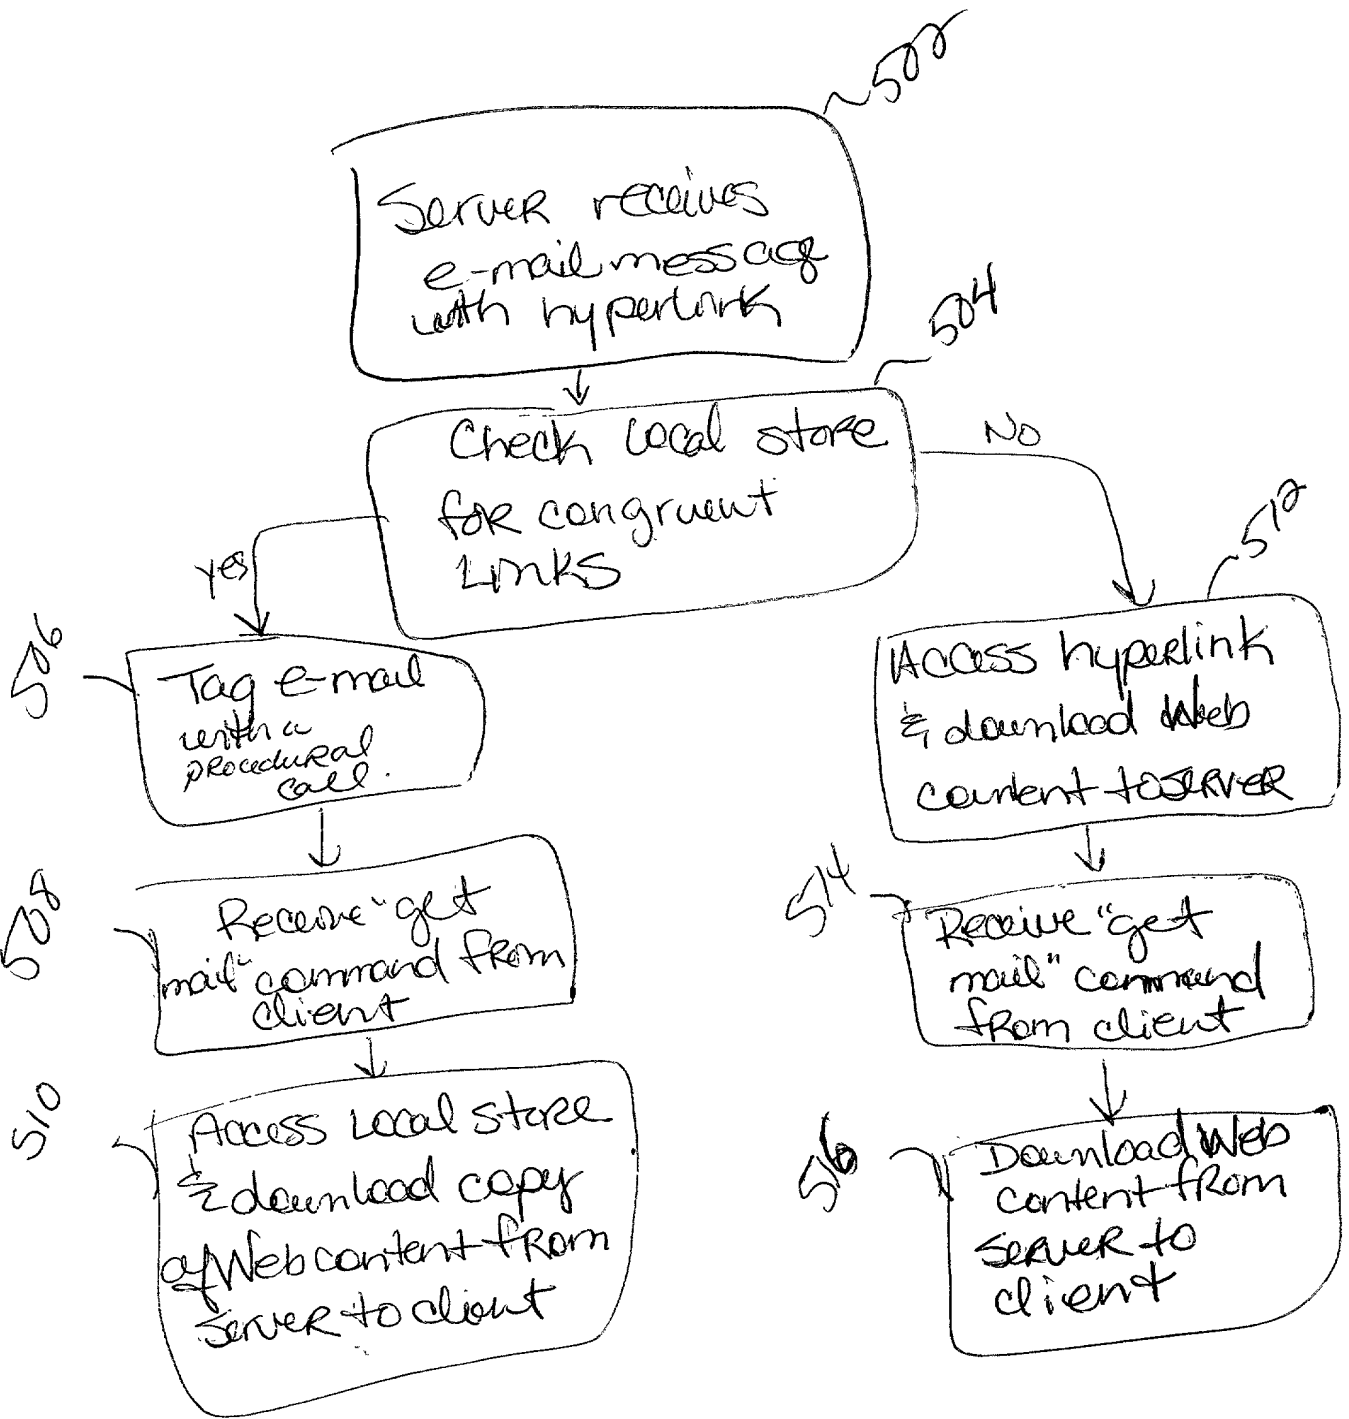 502
Server receives
e-mail message
with hyperlink
504
Check Local store
for congruent
Links
No
Yes
512
506
Tag e-mail
with a
procedural
call.
Access hyperlink
& download Web
content to server
508
Receive "get
mail" command from
client
514
Receive "get
mail" command
from client
510
Access Local store
& download copy
of Web content from
server to client
516
Download Web
content from
server to
client